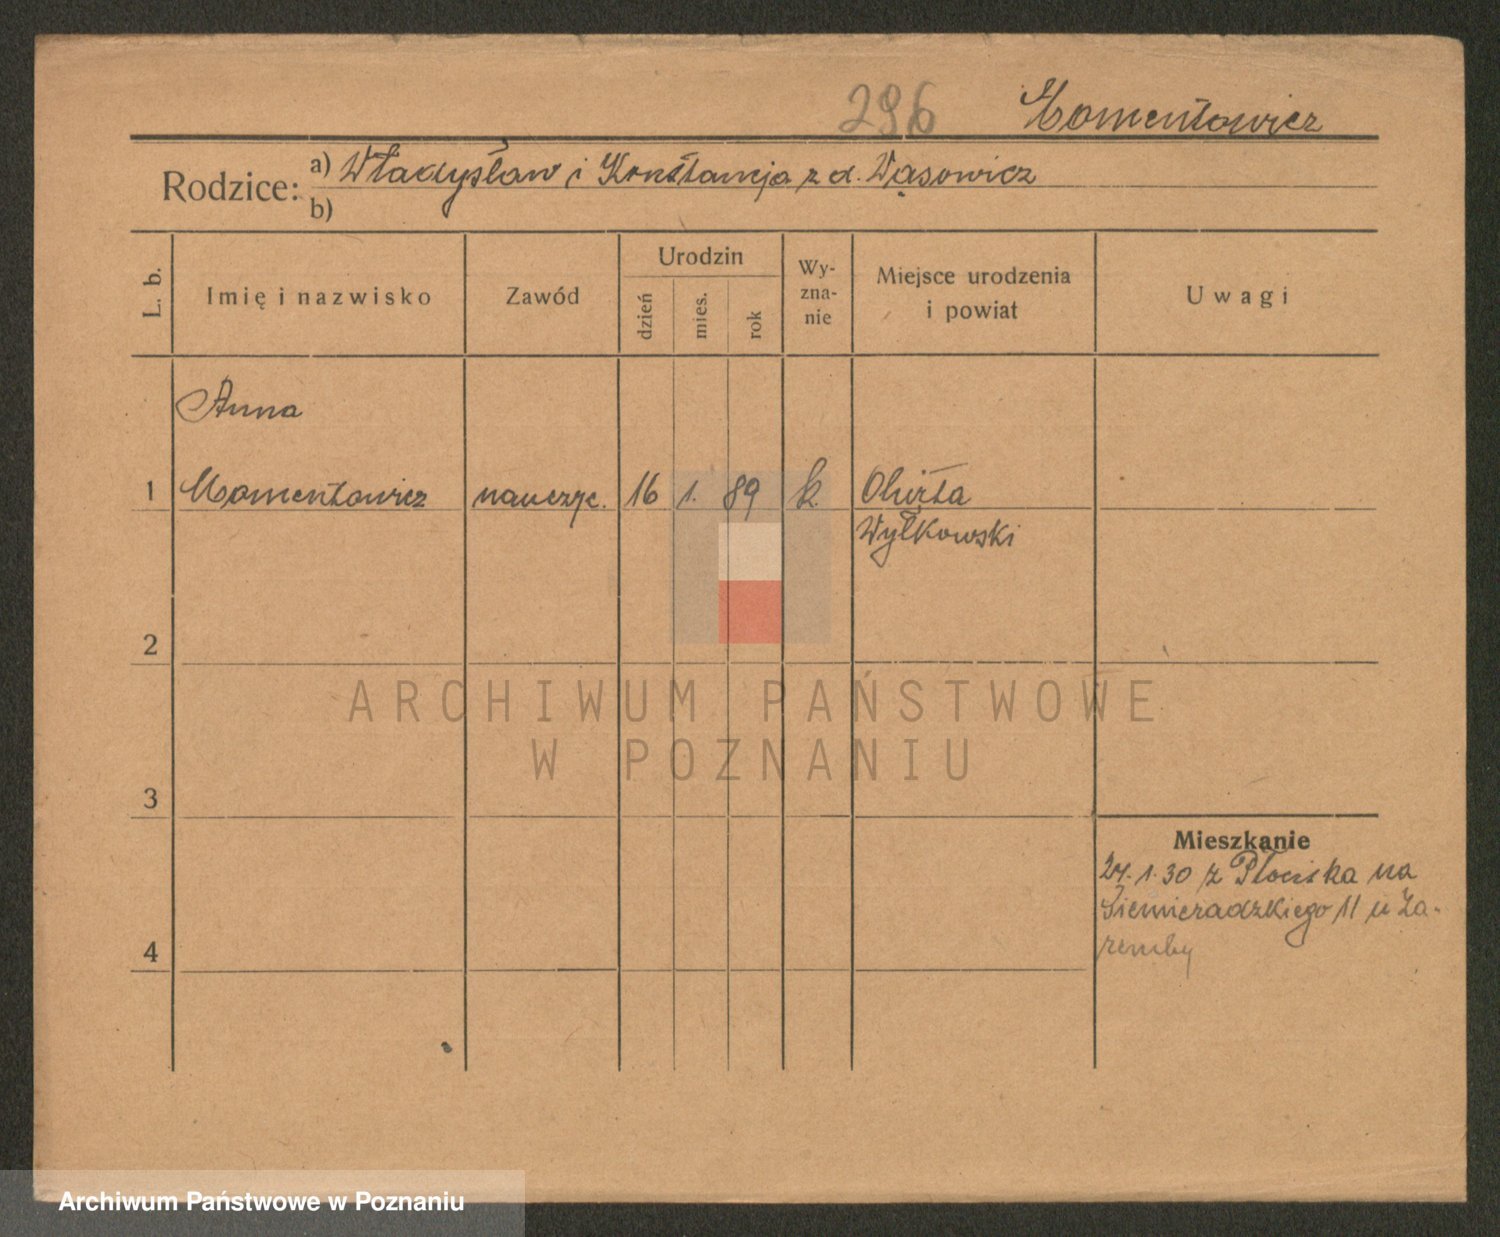 296 Momentowicz
Rodzice: a) Władysław i Konstancja z d. Wąsowicz
b)
L. b. Imię i nazwisko Zawód Urodzin dzień mies. rok Wyznanie Miejsce urodzenia i powiat Uwagi
Anna
1 Momentowicz nauczyc. 16 1. 89 k.
Wyłkowski
2
ARCHIWUM PAŃSTWOWE
W POZNANIU
3
Mieszkanie
24. 1. 30 z Płociska na
Siemieradzkiego 11 u Za-
remby
4
Archiwum Państwowe w Poznaniu